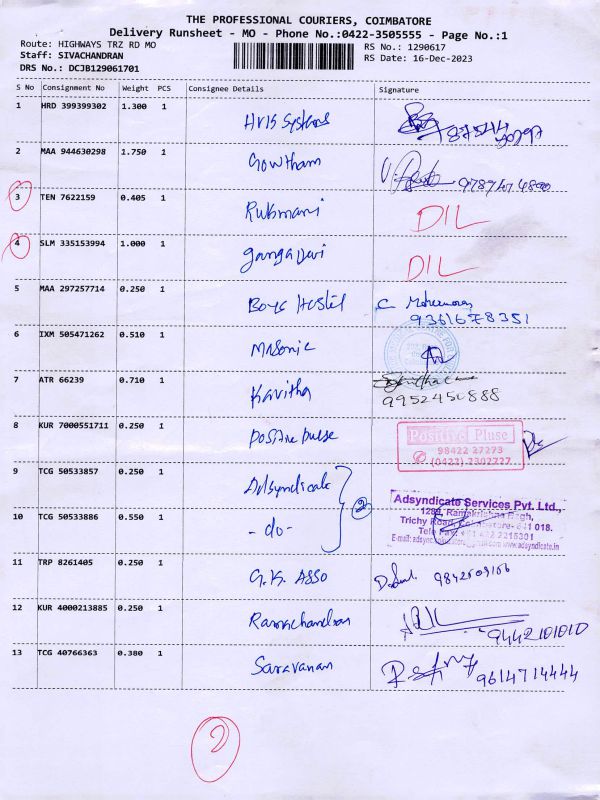 THE PROFESSIONAL COURIERS, COIMBATORE
Delivery Runsheet - MO - Phone No.:0422-3505555 - Page No.:1
Route: HIGHWAYS TRZ RD MO
RS No.: 1290617
Staff: SIVACHANDRAN
RS Date: 16-Dec-2023
DRS No.: DCJB129061701
S No Consignment No Weight PCS Consignee Details Signature
1 HRD 399399302 1.300 1 Systems
2 MAA 944630298 1.750 1 Gowtham
3 TEN 7622159 0.405 1 Rukmani DIL
4 SLM 335153994 1.000 1 Ganga Devi DIL
5 MAA 297257714 0.250 1 Boys Hostel C
9361678351
6 IXM 505471262 0.510 1 Masonic
7 ATR 66239 0.710 1 Kavitha
9952450888
8 KUR 7000551711 0.250 1 Positive pulse
Positive Pluse
98422 27273
(0422) 2302727
9 TCG 50533857 0.250 1 Adsyndicate
2
Adsyndicate Services Pvt. Ltd.,
10 TCG 50533886 0.550 1 - do -
Trichy Road, Coimbatore- 641 018.
www.adsyndicate.in
11 TRP 8261405 0.250 1 G.K. ASSO
12 KUR 4000213885 0.250 1 Ramachandran
9442101010
13 TCG 40766363 0.380 1 Saravanan
9614714444
2